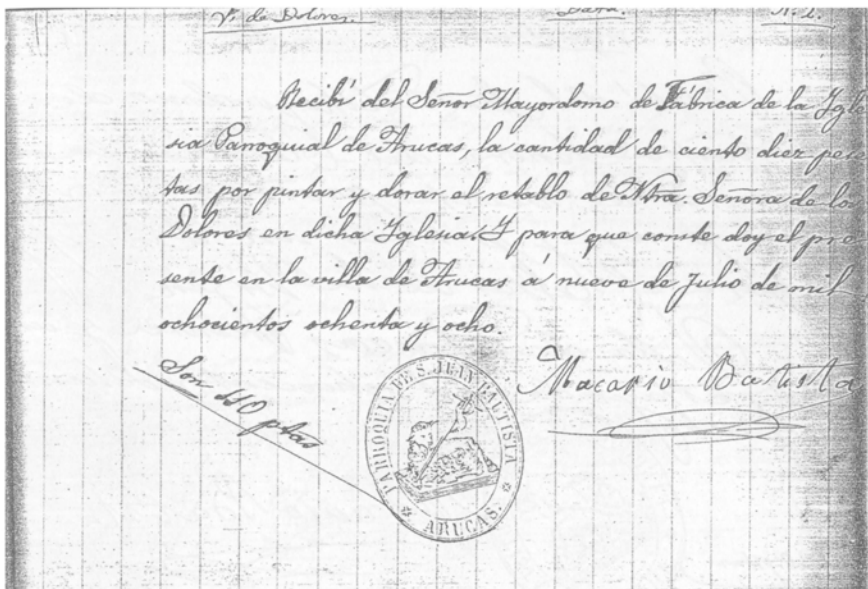 V. de Dolores. Data. N. 1.
Recibí del Señor Mayordomo de Fábrica de la Igle
sia Parroquial de Arucas, la cantidad de ciento diez pese
tas por pintar y dorar el retablo de Ntra. Señora de los
Dolores en dicha Iglesia. Y para que conste doy el pre
sente en la villa de Arucas á nueve de Julio de mil
ochocientos ochenta y ocho.
Son 110 ptas
Macario Batista
PARROQUIA DE S. JUAN BAUTISTA
ARUCAS.